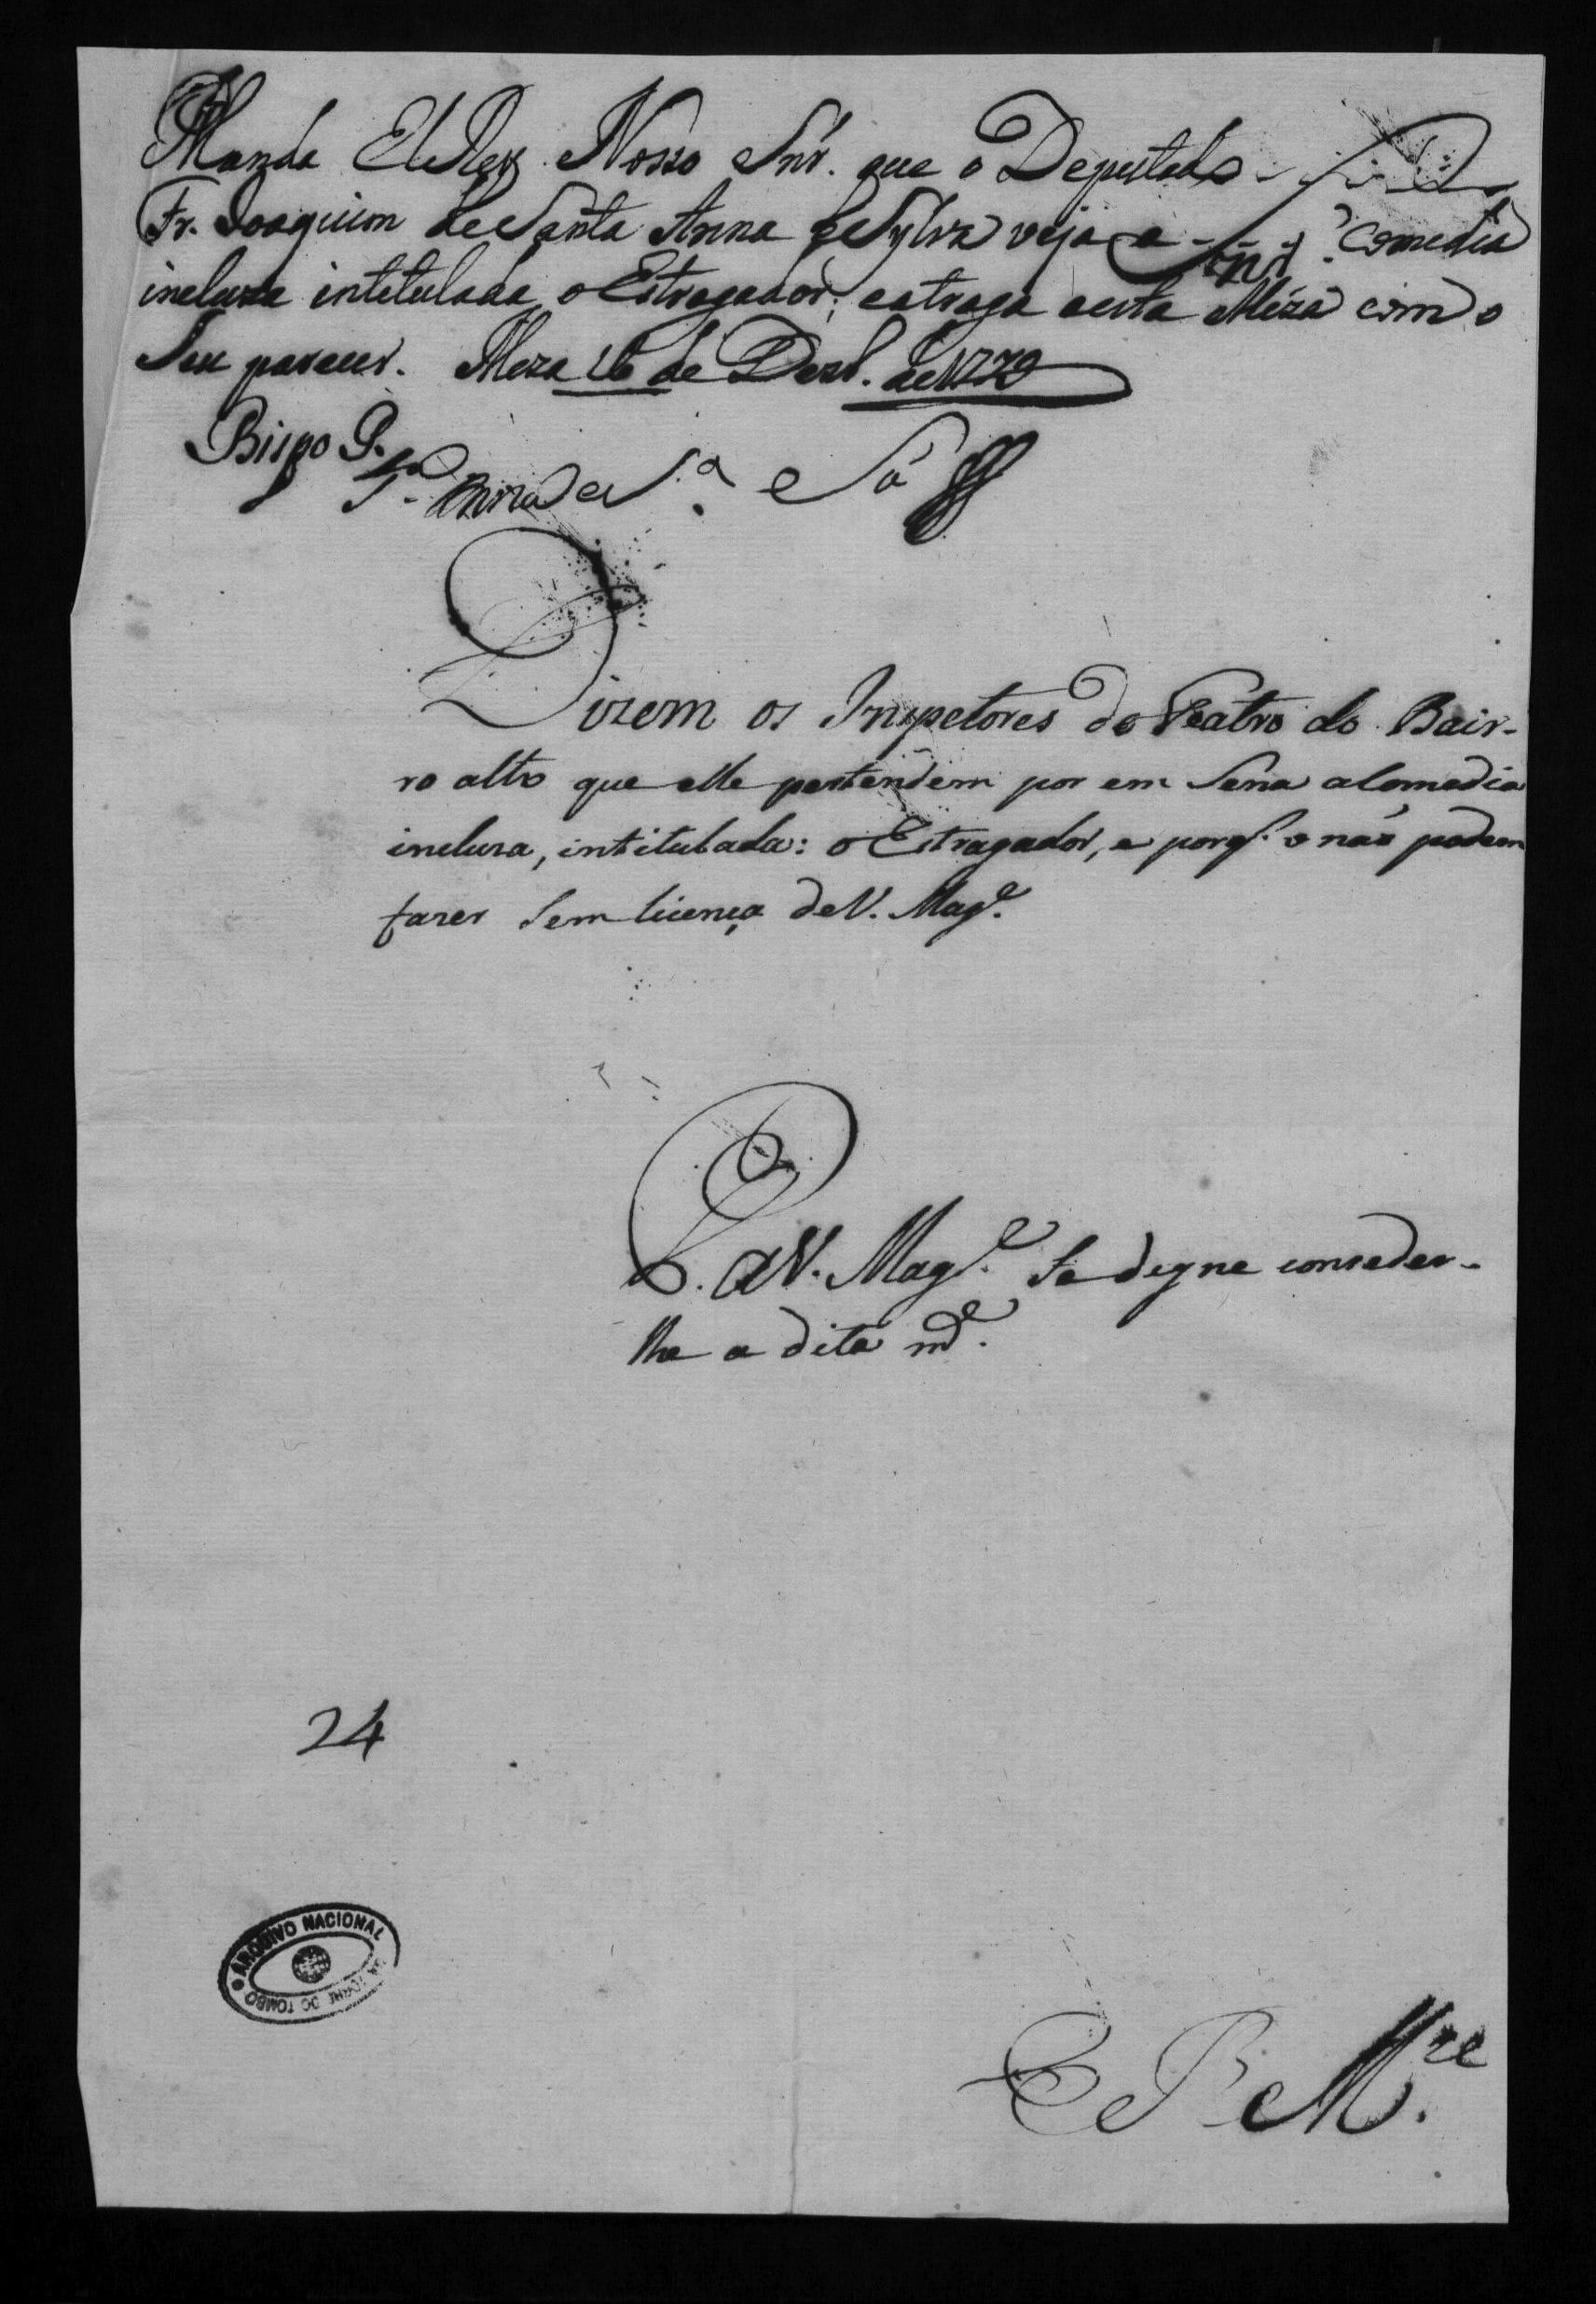 Manda ElRey Nosso Snr. que o Deputado
Fr. Joaquim de Santa Anna e Sylva veja a comedia
Snr.
incluza intitulada o Estragador; e a traga a esta Meza com o
seu parecer. Meza 16 de Dezbr. de 1779
Bispo P.
e Sá
Dizem os Inspetores do Teatro do Bair-
ro alto que elle pertendem por em Sena a Comadia
incluza, intitulada: o Estragador, e porq. o não podem
fazer sem licença de V. Magde.
P. a V. Magde. Se digne conseder-
lhe a dita
24
ARQUIVO NACIONAL
DA TORRE DO TOMBO
E R Mce.